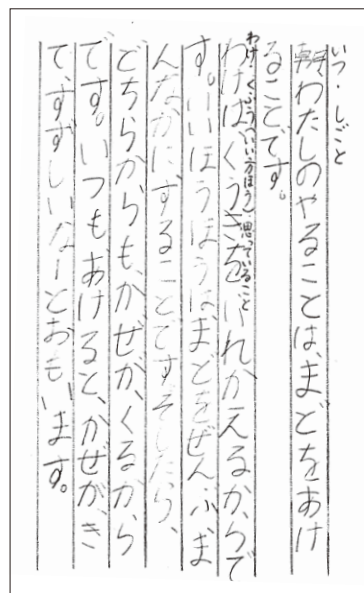 いつ・しごと
朝わたしのやることは、まどをあけ
ることです。
わけ・くふう(いい方ほう)・思っていること
わけはくうきをいれかえるからで
す。いいほうほうは、まどをぜんぶま
んなかにすることですそしたら、
どちらからも、かぜが、くるから
です。いつもあけると、かぜが、き
て、すずしいなーとおもいます。